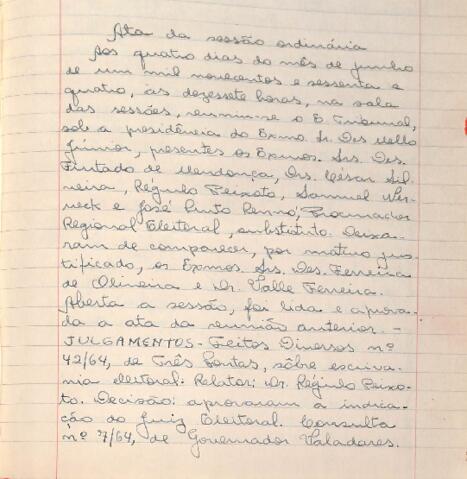 Ata da sessão ordinária
Aos quatro dias do mês de junho
de um mil novecentos e sessenta e
quatro, às dezessete horas, na sala
das sessões, reuniu-se o E. Tribunal,
sob a presidência do Exmo. Sr. Des. Mello
Júnior, presentes os Exmos. Srs. Des.
Furtado de Mendonça, Drs. César Sil-
veira, Régulo Peixoto, Samuel Wer-
neck e José Pinto Renó, Procurador
Regional Eleitoral, substituto. Deixa-
ram de comparecer, por motivo jus-
tificado, os Exmos. Srs. Des. Ferreira
de Oliveira e Dr. Valle Ferreira.
Aberta a sessão, foi lida e aprova-
da a ata da reunião anterior. -
JULGAMENTOS - Feitos Diversos nº
42/64, de Três Pontas, sôbre escriva-
nia eleitoral. Relator: Dr. Régulo Peixo-
to. Decisão: aprovaram a indica-
ção do Juiz Eleitoral. Consulta
nº 7/64, de Governador Valadares.